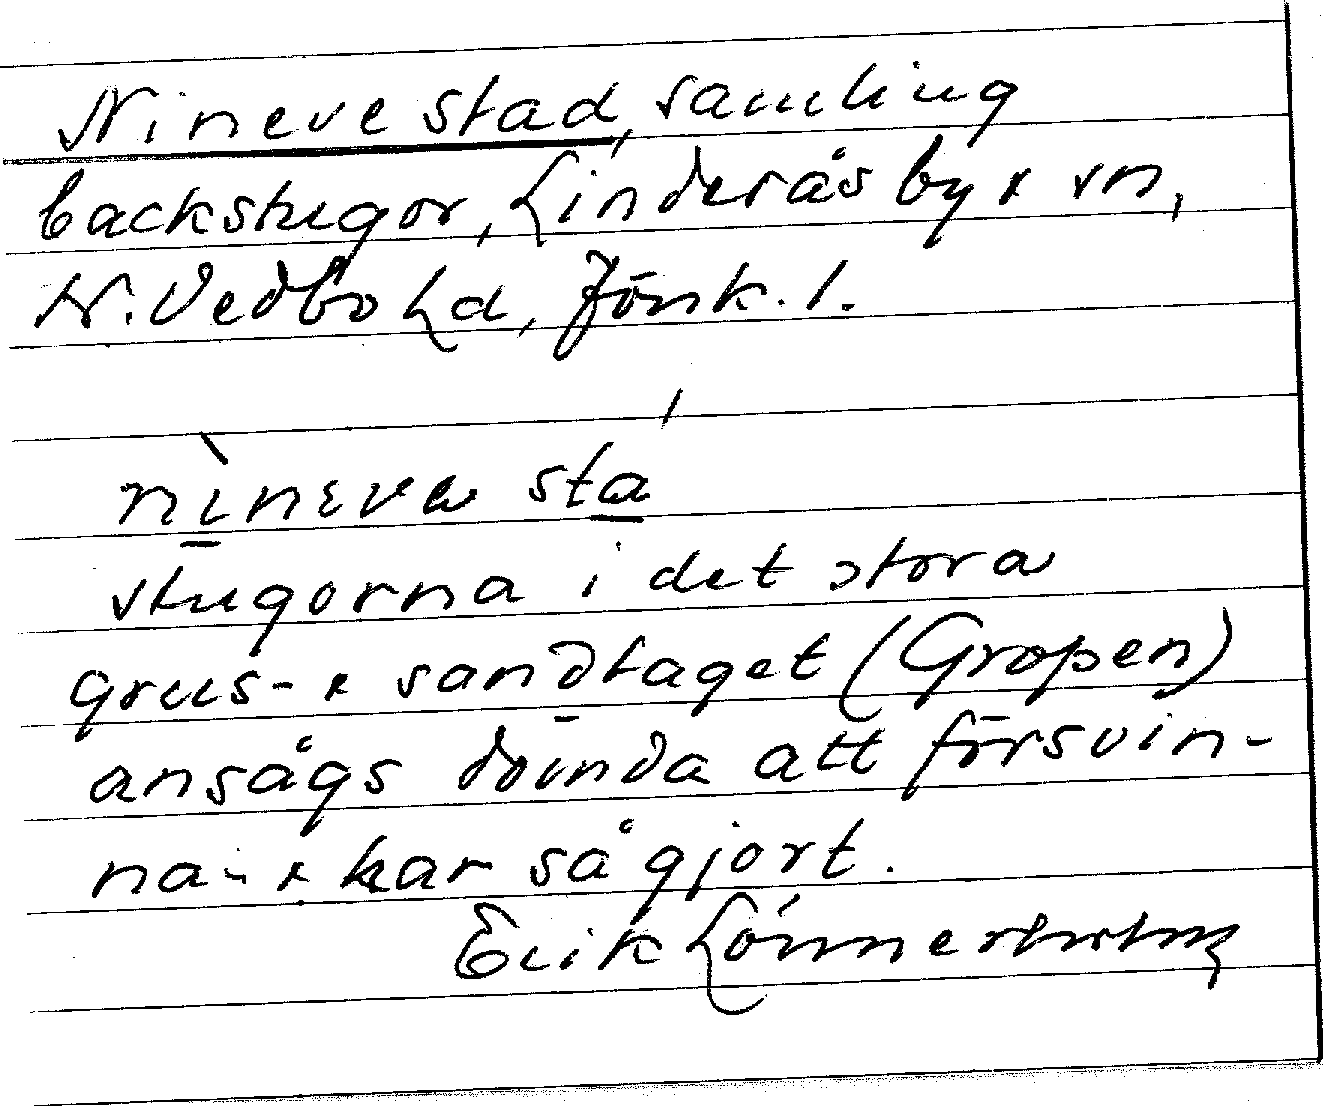 Nineve stad, samling
backstugor, Linderås by x sn,
N. Vedbo hd, Jönk. l.
nìneva sta
stugorna i det stora
grus- x sandtaget (Gropen)
ansågs dömda att försvin-
na - x har så gjort.
Erik Lönnerholm